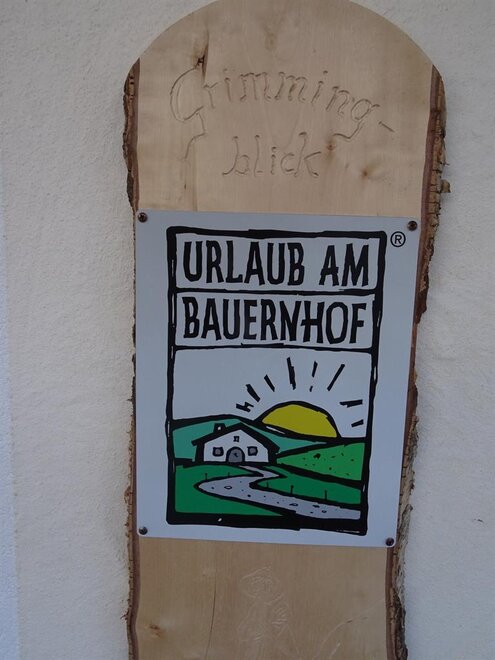 Grimming-
blick
URLAUB AM
BAUERNHOF
®